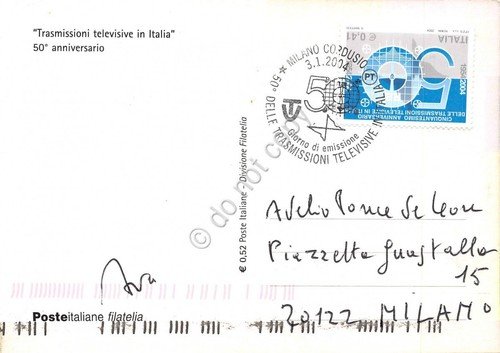 "Trasmissioni televisive in Italia"
50° anniversario
★ MILANO CORDUSIO ★
3.1.2004
PT
50
50° DELLE TRASMISSIONI TELEVISIVE IN ITALIA
Giorno di emissione
€ 0,41
ITALIA
1954-2004
50
CINQUANTESIMO ANNIVERSARIO
DELLE TRASMISSIONI TELEVISIVE IN ITALIA
€ 0,52 Poste Italiane - Divisione Filatelia
© do not copy
Adelio Ponce de Leon
Piazzetta Guastalla
15
20122 MILANO
Posteitaliane filatelia